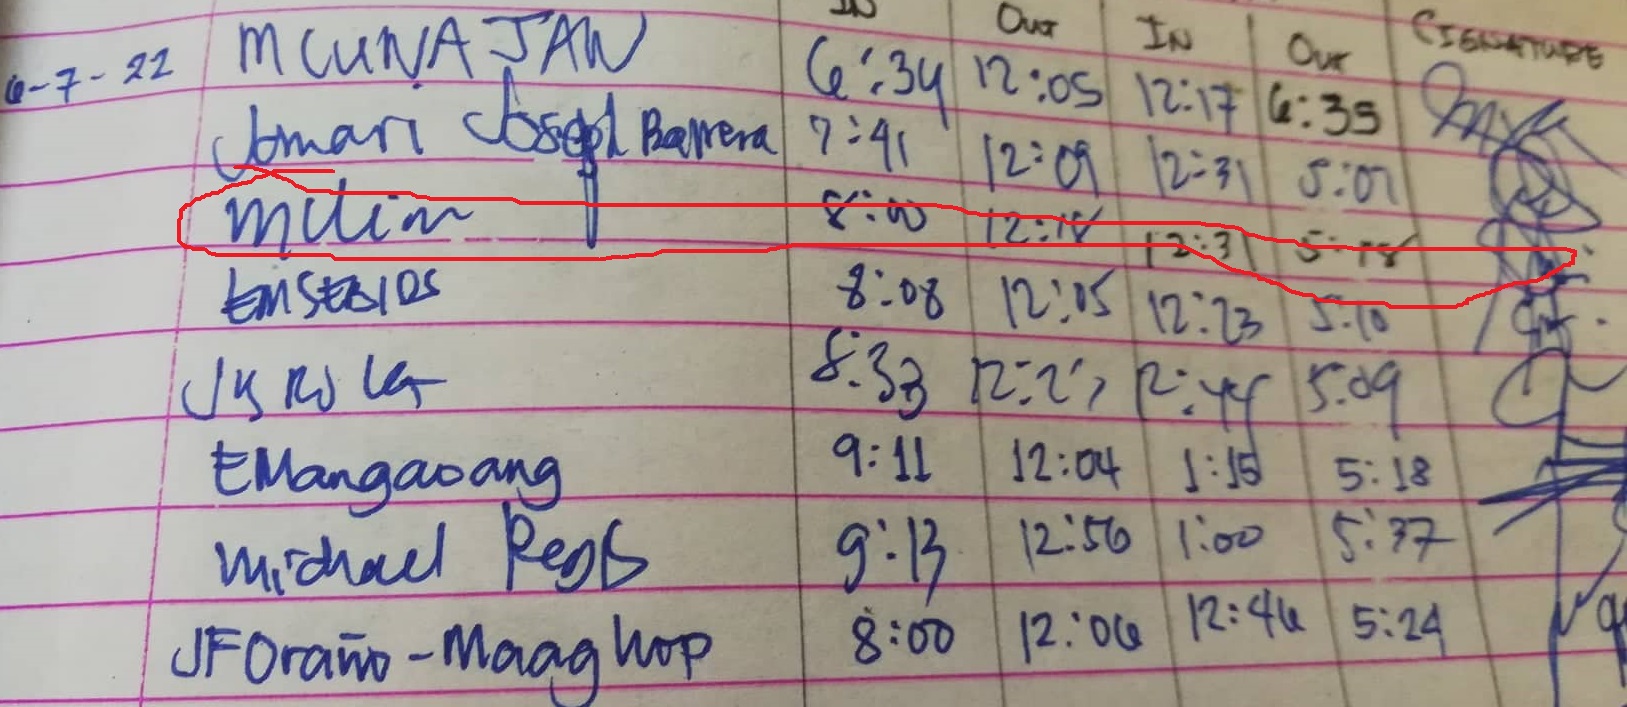 IN Out IN Out SIGNATURE
6-7-22 MCUNAJAN 6:34 12:05 12:17 6:35
Jomari Joseph Barrera 7:41 12:09 12:31 5:07
mclim 8:00 12:18 12:31 5:18
EMSEBIOS 8:08 12:05 12:23 5:10
8:33 12:27 12:44 5:09
EMangaoang 9:11 12:04 1:15 5:18
Michael 9:13 12:56 1:00 5:37
JFOraño-Maaghop 8:00 12:06 12:46 5:24